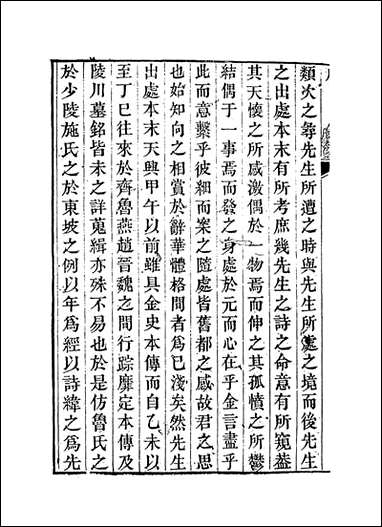 類次之等先生所遭之時與先生所處之境而後先生
之出處本末有所考庶幾先生之詩之命意有所窺葢
其天懷之所感激偶於一物焉而伸之其孤憤之所鬱
結偶于一事焉而發之身處於元而心在乎金言盡乎
此而意繫乎彼細而案之隨處皆舊都之感故君之思
也始知向之相賞於辭華體格間者為已淺矣然先生
出處本末天興甲午以前雖具金史本傳而自乙未以
至丁巳往來於齊魯燕趙晉魏之間行踪靡定本傳及
陵川墓銘皆未之詳蒐緝亦殊不易也於是仿魯氏之
於少陵施氏之於東坡之例以年為經以詩緯之為先